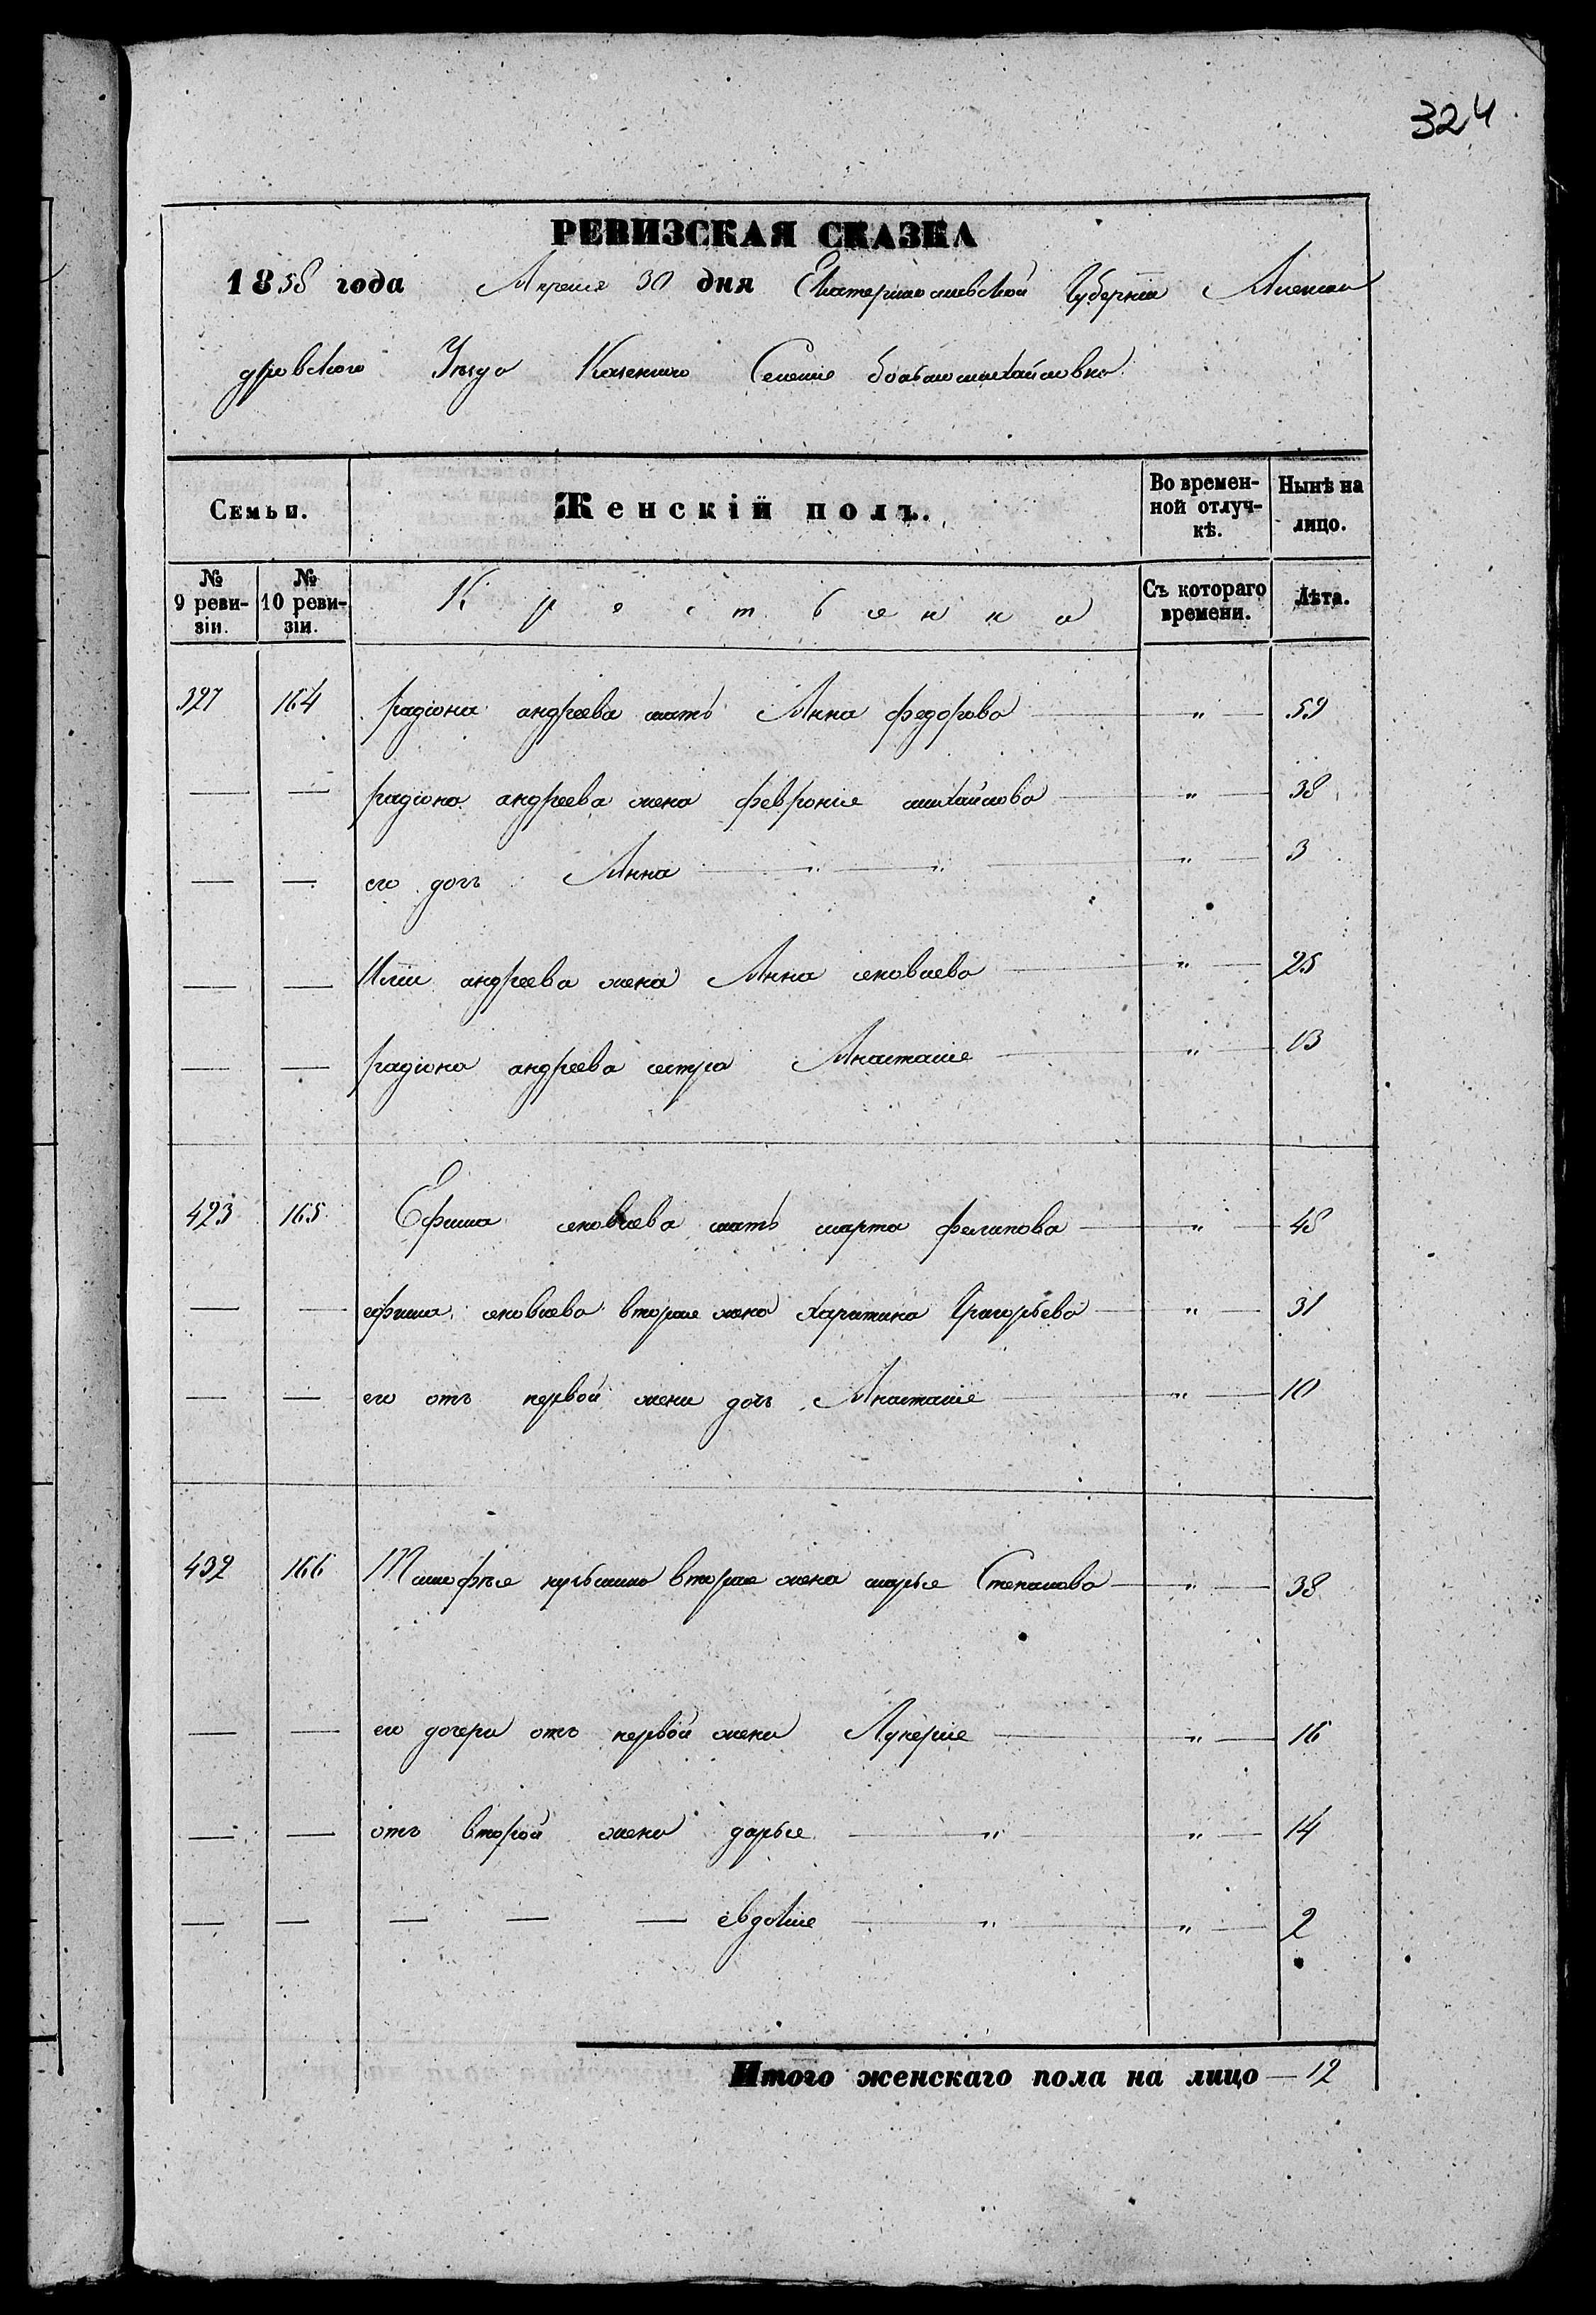 324
РЕВИЗСКАЯ СКАЗКА
1858 года Апреля 30 дня Екатеринославской Губернии Алексан
дровского Уезда Казенного Селения большомихайловка
Семьи.
Женскій полъ.
Во времен-
ной отлуч-
кѣ.
Нынѣ на
лицо.
№
9 реви-
зіи.
№
10 реви-
зіи.
Съ котораго
времени.
Лѣта.
327 164 радіона андреева мать Анна федорова — „ — 59
— — радіона андреева жена февронія михайлова — „ — 38
— — его дочь Анна — „ — „ — „ — 3
— — Иліи андреева жена Анна яковлева — „ — 25
— — радіона андреева сестра Анастасія — „ — 13
423 165 Ефима яковлева мать марта филипова — „ — 48
— — ефима яковлева вторая жена харитина Григорьева — „ — 31
— — его отъ первой жени дочь Анастасія — „ — 10
432 166 Тимофея вторая жена марья Степанова — „ — 38
— — его дочери отъ первой жени Лукерія — „ — 16
— — отъ второй жени дарья — „ — „ — 14
— — — — — евдокія — „ — „ — 2
Итого женскаго пола на лицо — 12